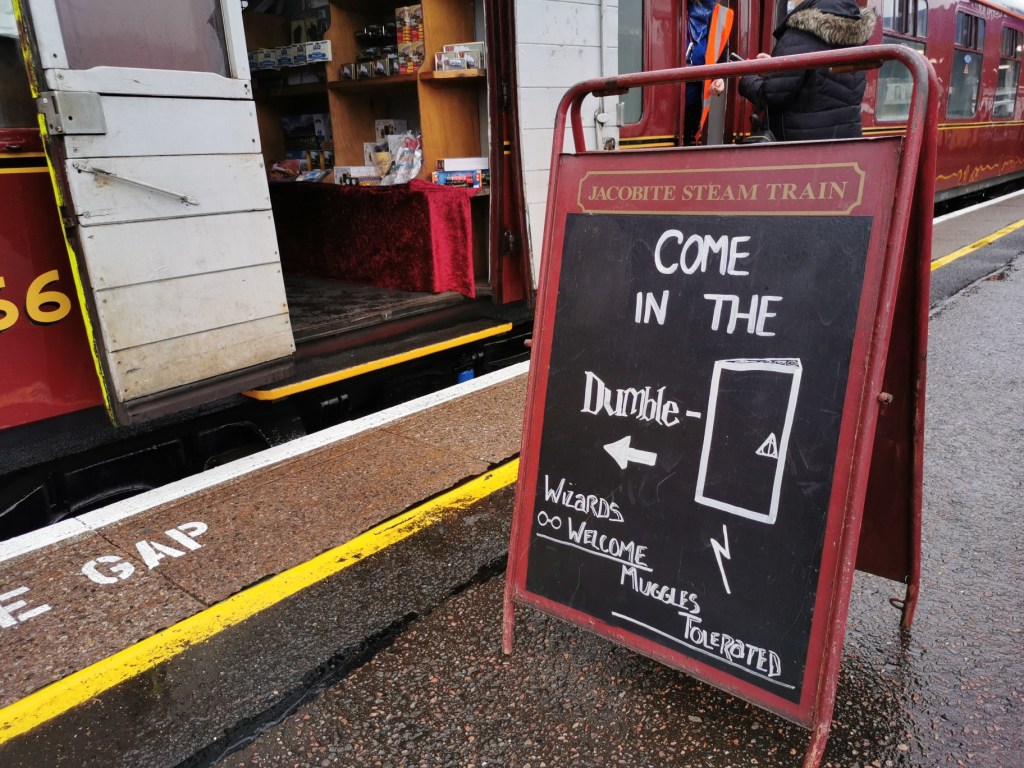 JACOBITE STEAM TRAIN
COME
IN THE
Dumble-
WIZARDS
WELCOME
MUGGLES
TOLERATED
GAP
56